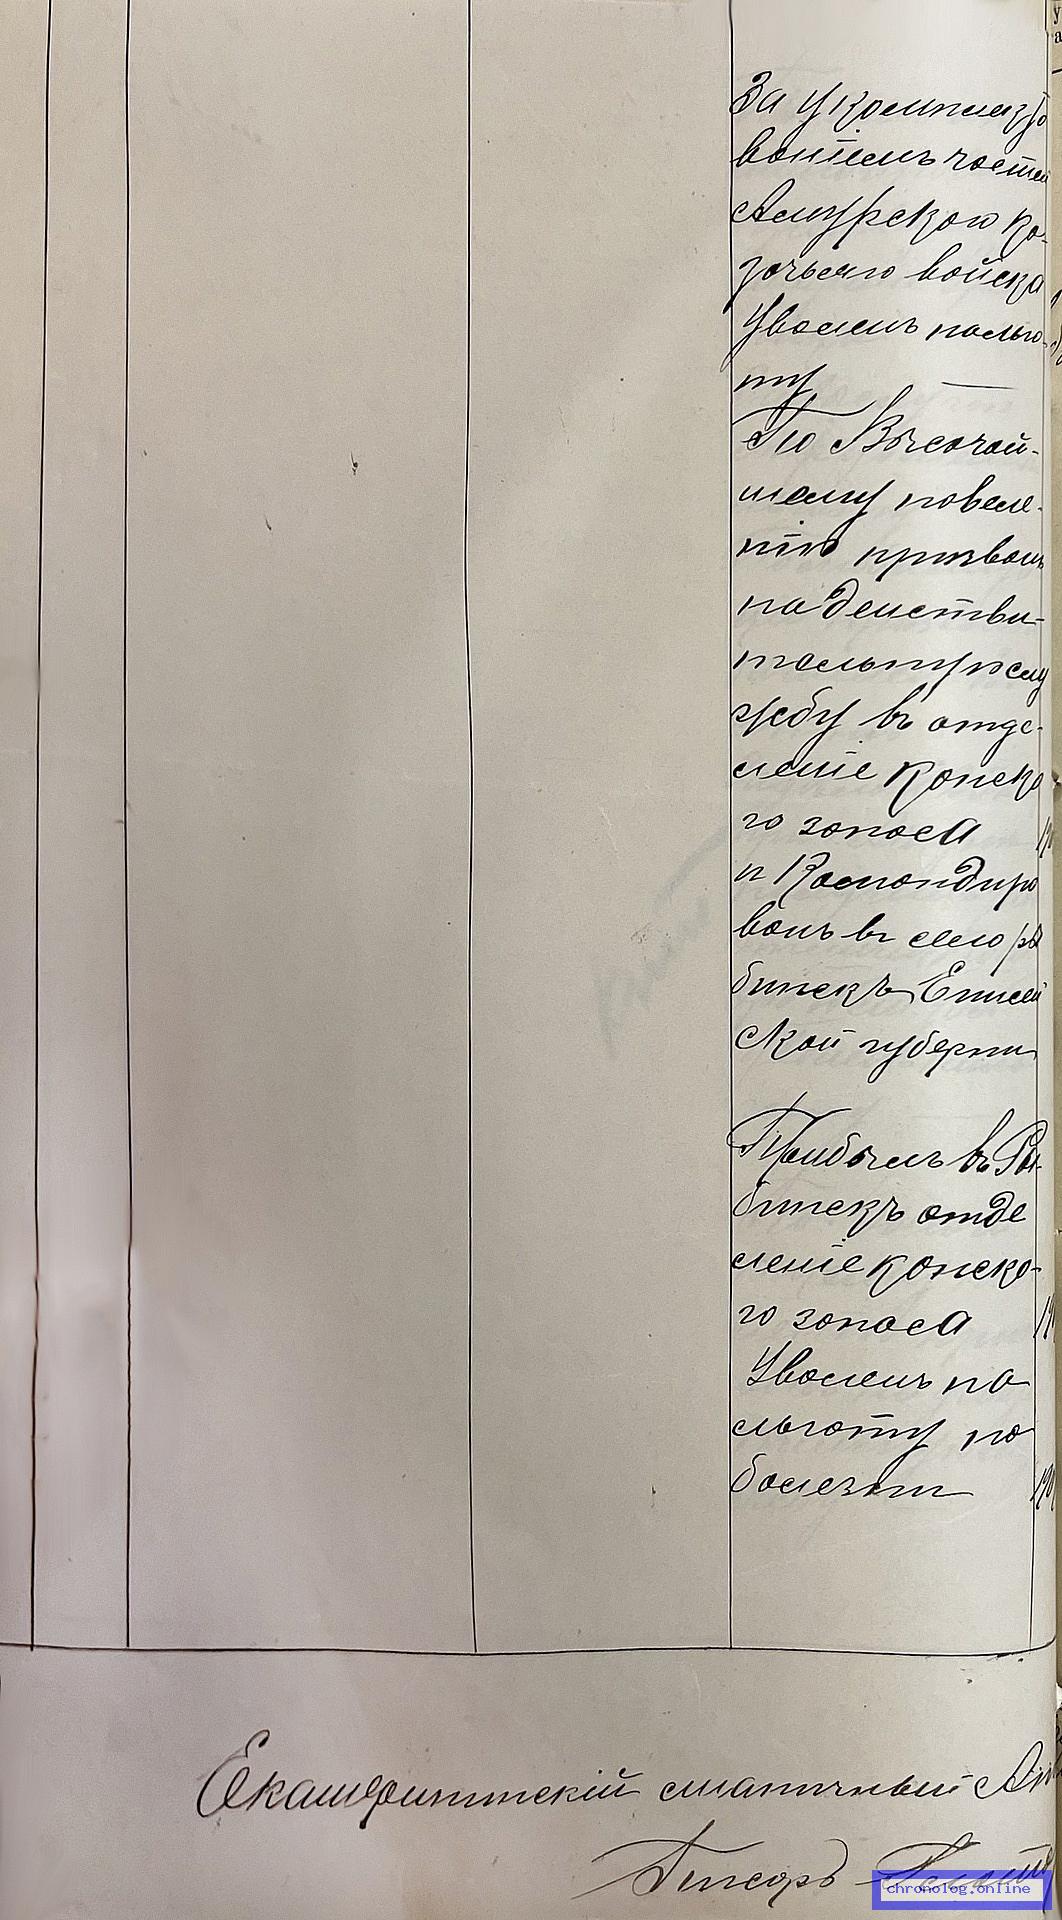 За укомплекто
ваніемъ частей
Амурскаго ка-
зачьяго войска
Уволенъ нальго-
ту —
По Высочай-
шему повеле-
нію призванъ
на действи-
тельную слу
жбу въ отде-
леніе конско
го запаса
и Командиро
ванъ въ село Ры
бинскъ Енисей
ской губерни
Прибылъ въ Ры-
бинскъ отде
леніе конско-
го запаса
Уволенъ на
льготу по
болезни
Екатерининскій станичный
Писарь
chronolog.online